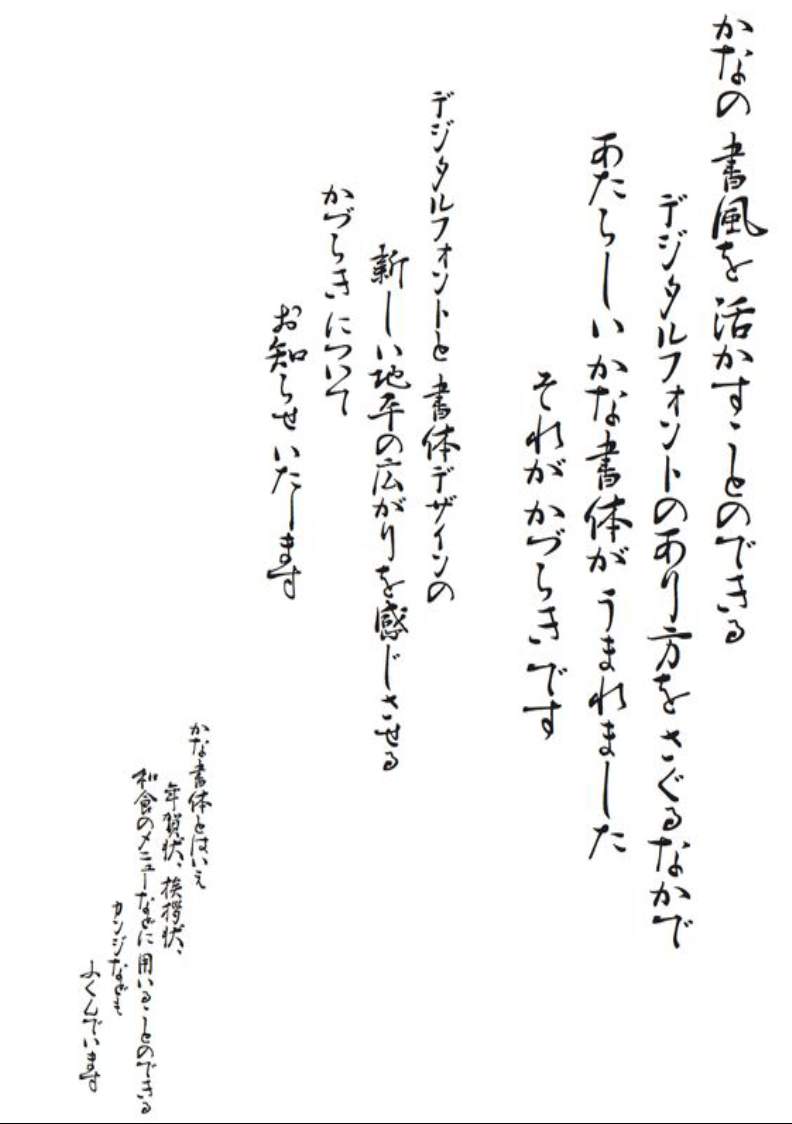 かなの書風を活かすことのできる
デジタルフォントのあり方をさぐるなかで
あたらしいかな書体がうまれました
それがかづらきです
デジタルフォントと書体デザインの
新しい地平の広がりを感じさせる
かづらきについて
お知らせいたします
かな書体とはいえ
年賀状、挨拶状、
和食のメニューなどに用いることのできる
カンジなども
ふくんでいます